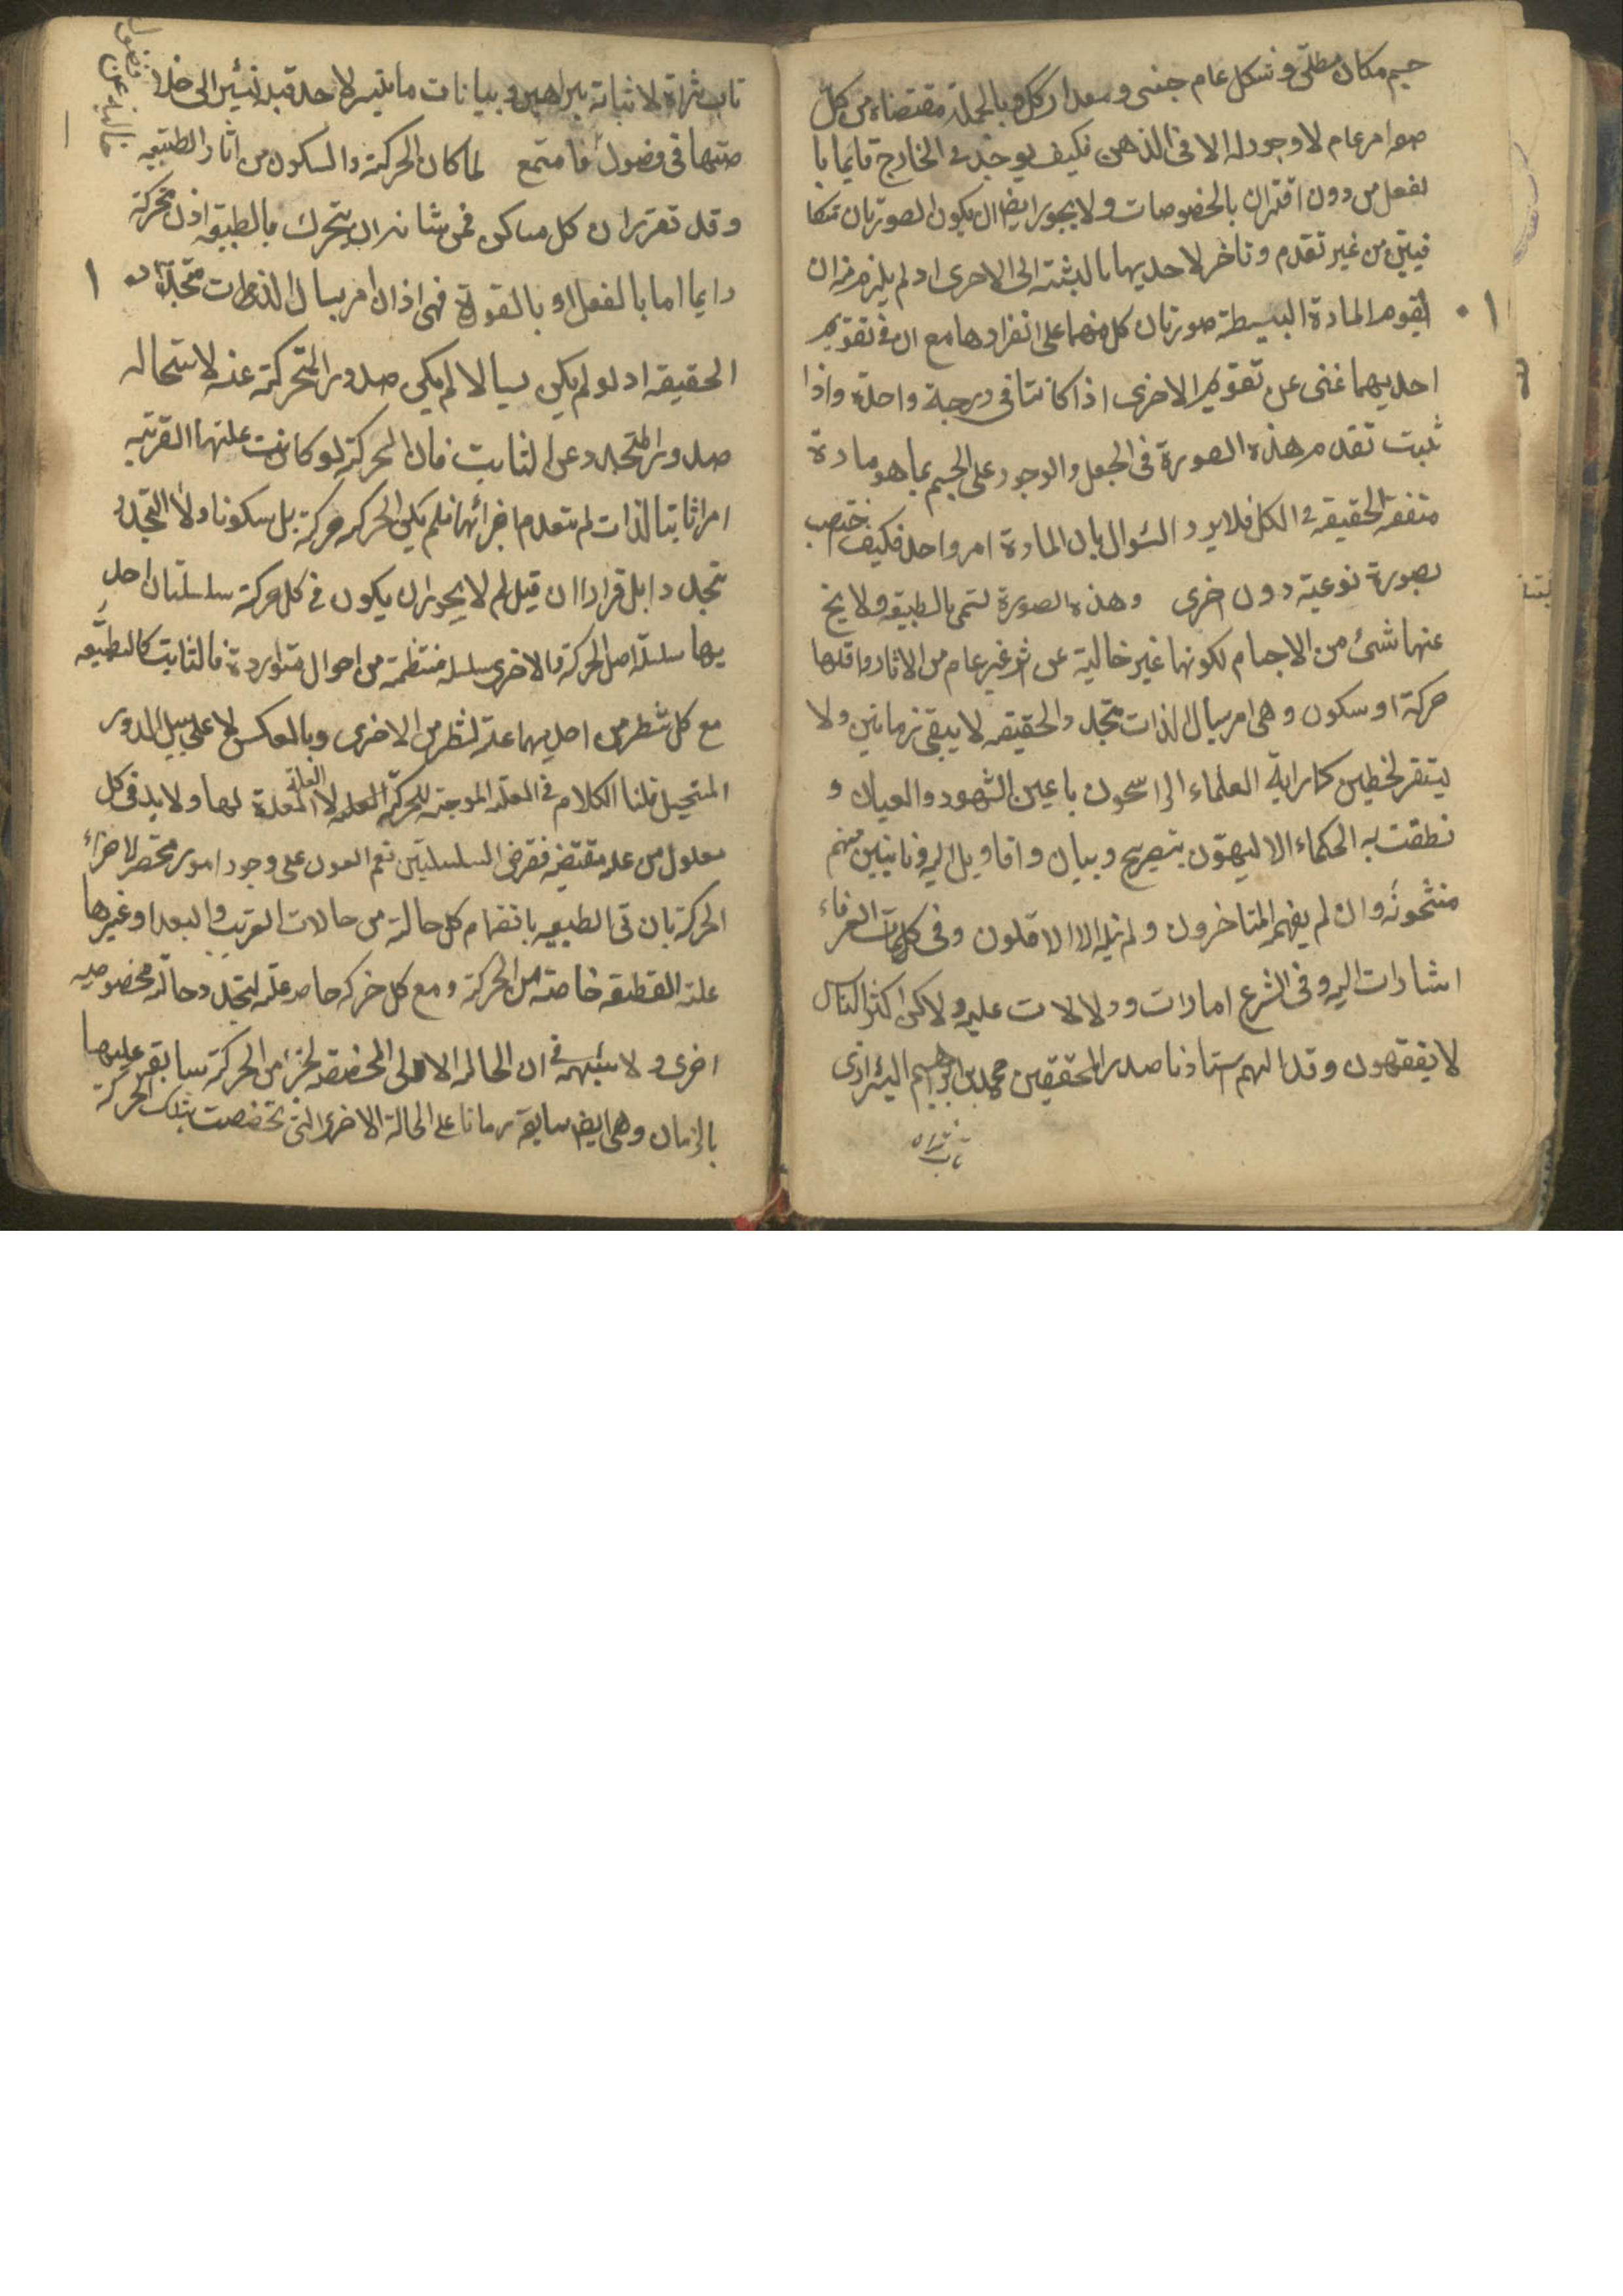 جسم مكان مطلق و شكل عام جنسى و مقدار كك و بالجملة مقتضاه من كل
صفه امر عام لا وجود له الا فى الذهن فكيف يوجد فى الخارج قايما با
لفعل من دون اقتران بالخصوصات و لا يجوز ايضا ان يكون الصورتان متكا
فيتين من غير تقدم و تاخر لاحديهما بالنسبة الى الاخرى اذ لم يلزم منه ان
يقوم المادة البسيطة صورتان كل منهما على انفرادها مع ان فى تقويم
احديهما غنى عن تقويم الاخرى اذا كانتا فى درجة واحدة و اذا
ثبت تقدم هذه الصورة فى الجعل و الوجود على الجسم بما هو مادة
متفقة الحقيقة فى الكل فلا يرد السئوال بان المادة امر واحد فكيف اختص
بصورة نوعية دون اخرى و هذه الصورة تسمى بالطبيعه و لا يخ
عنها شئ من الاجسام لكونها غير خالية عن اثر غير عام من الاثار و اقلها
حركة او سكون و هى امر سيال الذات متجدد الحقيقه لا يبقى زمانين و لا
يستقر لحظتين كما راية العلماء الراسخون باعين الشهود و العيان و
نطقت به الحكماء الالهيون بتصريح و بيان و اقاويل اليونانيين منهم
مشحونه و ان لم يفهم المتاخرون و لم ينله الا الاقلون و فى كلمات العرفاء
اشارات اليه و فى الشرع امارات و دلالات عليه و لاكن اكثر الناس
لا يفقهون و قد الهم استاذنا صدر المحققين محمد بن ابراهيم الشيرازى
تاب ثراه
تاب ثراه لاثباته ببراهين و بيانات ما تيسر لاحد قبله نشير الى خلا
صتها فى فصول فاستمع لما كان الحركة و السكون من اثار الطبيعه
و قد تقرر ان كل ساكن فمن شانه ان يتحرك بالطبيعه اذن محركة
دايما اما بالفعل او بالقوة فهى اذن امر سيال الذات متجدد
الحقيقه اذ لو لم يكن سيالا لم يكن صدور الحركة عنه لاستحاله
صدور المتجدد عن الثابت فان الحركة لو كانت علتها القريبه
امرا ثابتا الذات لم تنعدم اجزائها فلم يكن الحركه حركة بل سكونا و لا التجدد
تجددا بل قرارا ان قيل لم لا يجوز ان يكون فى كل حركة سلسلتان احد
يها سلسلة اصل الحركة و الاخرى سلسلة منتظمة من احوال متواردة فالثابت كالطبيعه
مع كل شطر من احديهما علة لشطر من الاخرى و بالعكس لا على سبيل الدور
المستحيل قلنا الكلام فى العلة الموجبة للحركة العلة لا العلة المعدة لها و لا بد فى كل
معلول من علة مقتضيه ففرض السلسلتين نعم العون على وجود امور مخصصه لاجزاء
الحركة بان تى الطبيعه بانضمام كل حالة من حالات القرب و البعد او غيرها
علة القطعة خاصة من الحركة و مع كل حركة خاصه علة لتجدد حالة مخصوصه
اخرى و لا شبهه فى ان الحالة الاولى المخصصة لجزء من الحركة سابقه عليها
بالزمان و هى ايضا سابقة زمانا على الحالة الاخرى التى تخصصت بتلك الحركة